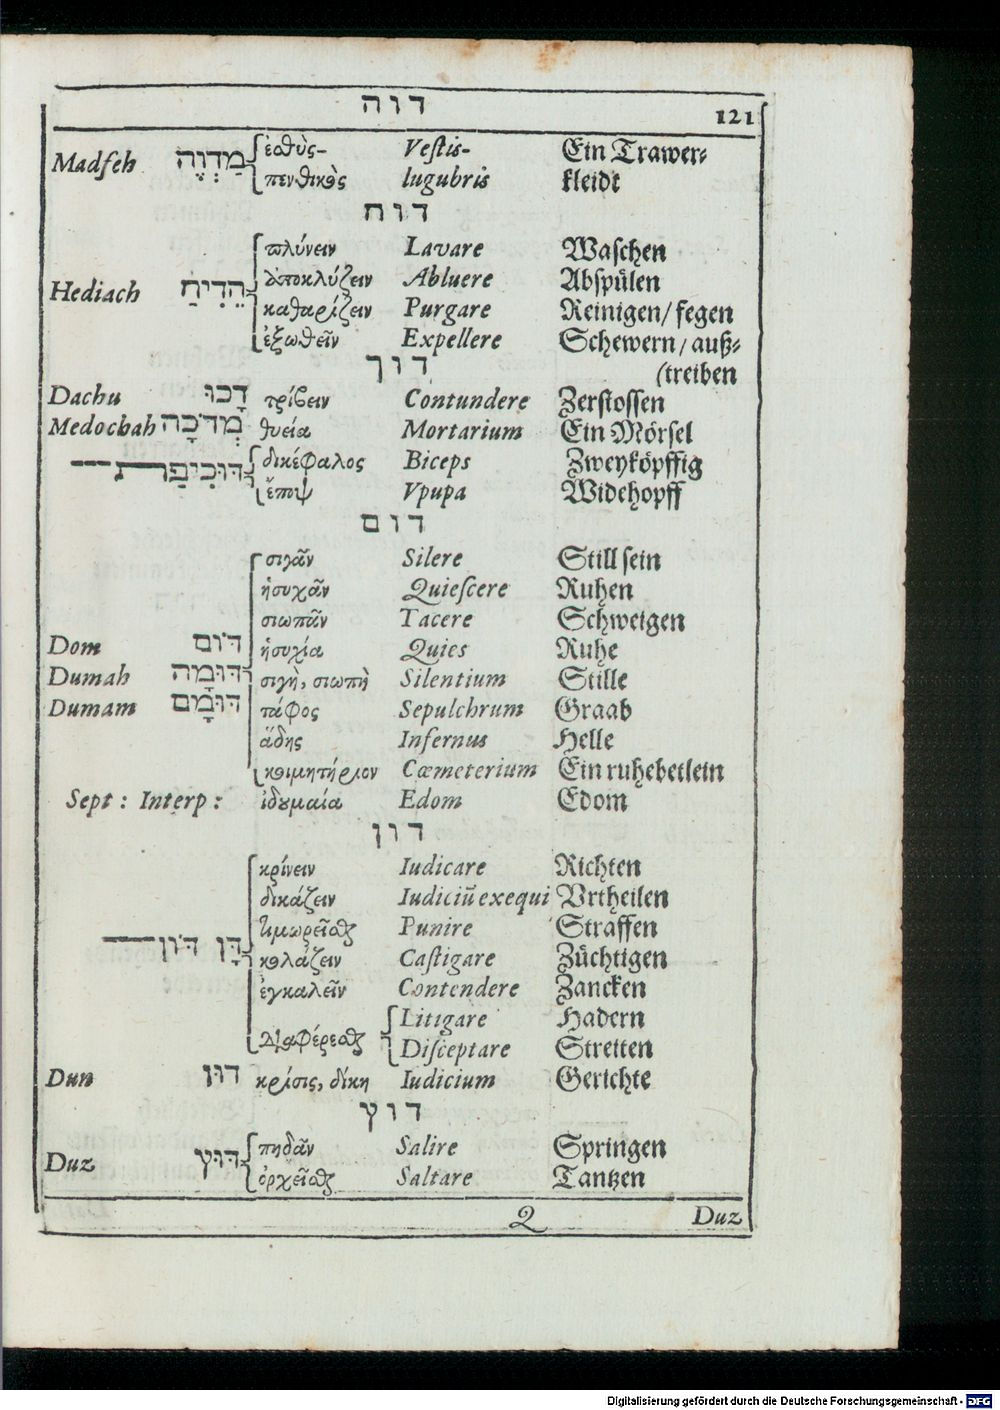 דוה 121
Madfeh מַדְוֶה ἐσθὺς- Vestis- Ein Trawer-
πενθικὸς lugubris kleidt
דוח
πλύνειν Lavare Waschen
ἀποκλύζειν Abluere Abspülen
Hediach הֵדִיחַ καθαρίζειν Purgare Reinigen/ fegen
ἐξωθεῖν Expellere Schewern/ auß-
דוך (treiben
Dachu דָכוּ τρίβειν Contundere Zerstossen
Medochah מְדֹכָה θυεία Mortarium Ein Mörsel
דּוּכִיפַת δικέφαλος Biceps Zweyköpffig
ἔποψ Vpupa Widehopff
דום
σιγᾶν Silere Still sein
ἡσυχᾶν Quiescere Ruhen
σιωπᾶν Tacere Schweigen
Dom דּוֹם ἡσυχία Quies Ruhe
Dumah דּוּמָה σιγὴ, σιωπὴ Silentium Stille
Dumam דּוּמָם τάφος Sepulchrum Graab
ἅδης Infernus Helle
κοιμητήριον Cœmeterium Ein ruhebetlein
Sept: Interp: ἰδουμαία Edom Edom
דון
κρίνειν Iudicare Richten
δικάζειν Iudiciũ exequi Vrtheilen
τιμωρεῖσθαι Punire Straffen
דָּן דּוֹן κολάζειν Castigare Züchtigen
ἐγκαλεῖν Contendere Zancken
διαφέρεσθαι Litigare Hadern
Disceptare Streiten
Dun דּוּן κρίσις, δίκη Iudicium Gerichte
דוץ
πηδᾶν Salire Springen
Duz דּוּץ ὀρχεῖσθαι Saltare Tantzen
Q Duz
Digitalisierung gefördert durch die Deutsche Forschungsgemeinschaft - DFG